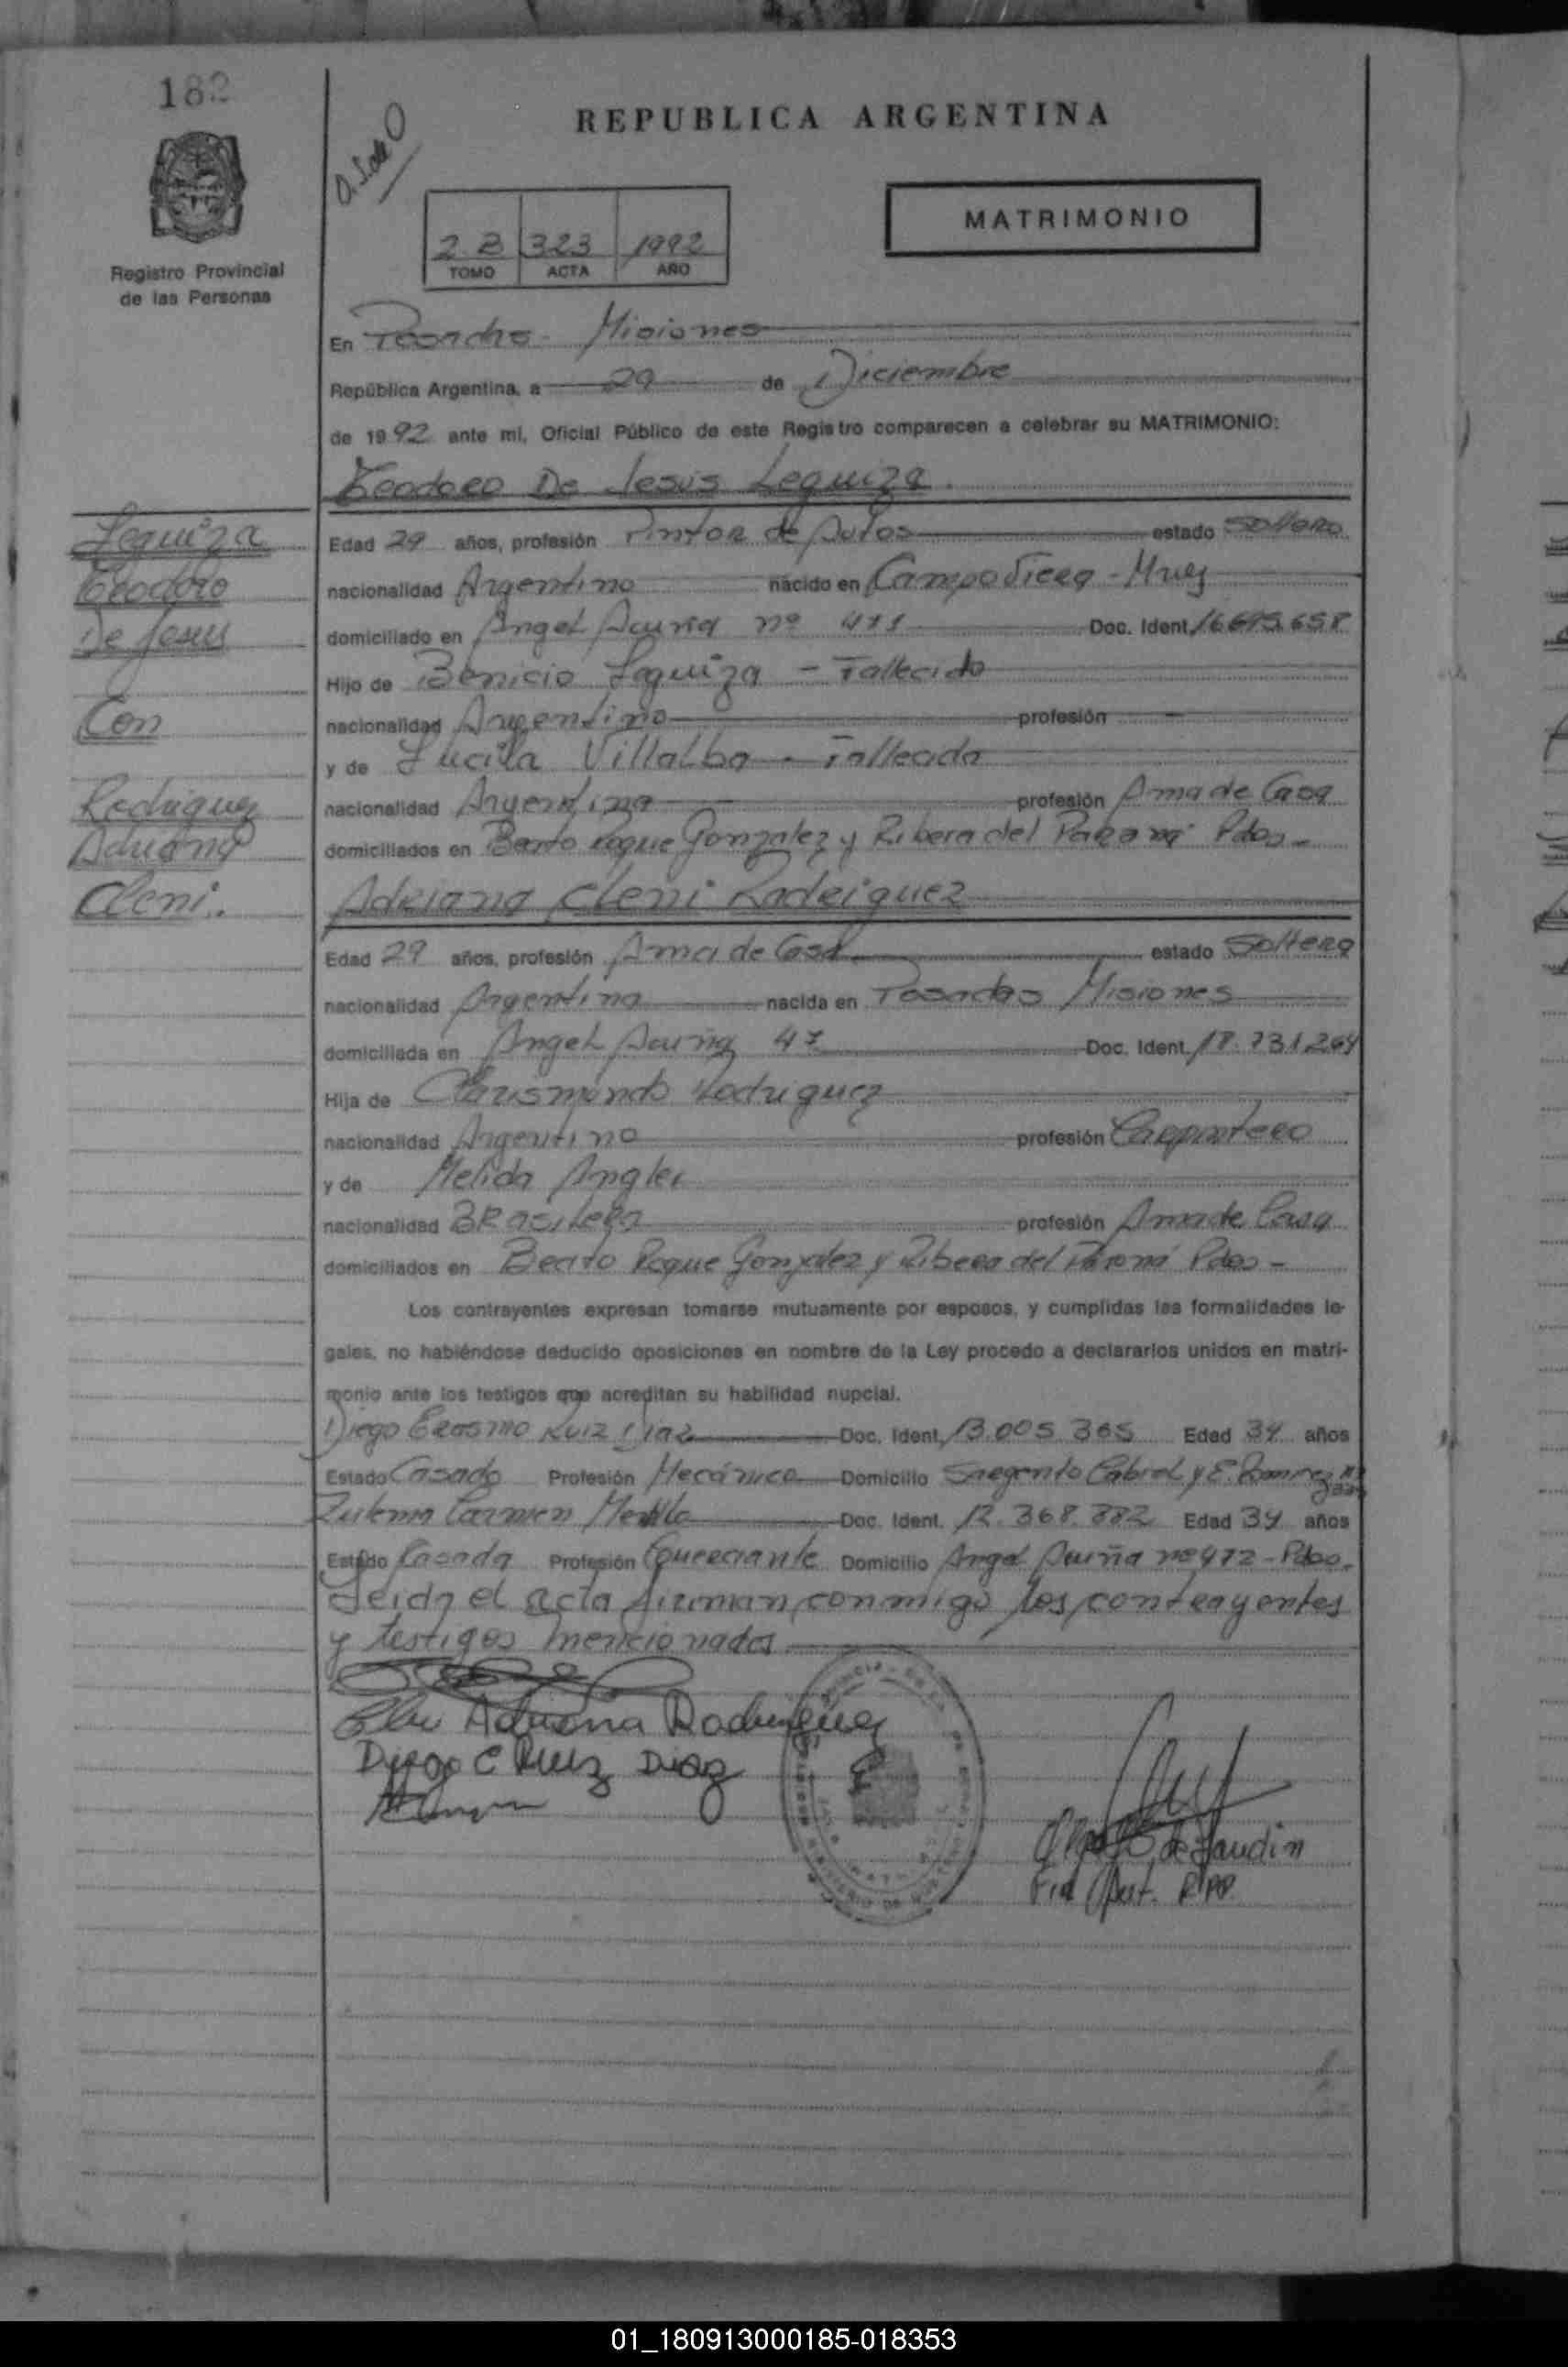 182
REPUBLICA ARGENTINA
MATRIMONIO
2 B 323 1992
TOMO ACTA AÑO
Registro Provincial
de las Personas
En Posadas - Misiones
República Argentina, a 29 de Diciembre
de 1992 ante mí, Oficial Público de este Registro comparecen a celebrar su MATRIMONIO:
Teodoro De Jesus Leguiza
Leguiza
Teodoro
De Jesus
Con
Rodriguez
Adriana
Cleni.
Edad 29 años, profesión Pintor de Autos estado Soltero
nacionalidad Argentino nacido en Campo Viera - Mnes
domiciliado en Angel Acuña nº Doc. Ident. 16.695.658
Hijo de Benicio Leguiza - Fallecido
nacionalidad Argentino profesión -
y de Lucila Villalba - Fallecida
nacionalidad Argentina profesión Ama de Casa
domiciliados en Beato Roque Gonzalez y Ribera del Paraná Pdas -
Adriana Cleni Rodriguez
Edad 29 años, profesión Ama de Casa estado Soltera
nacionalidad Argentina nacida en Posadas Misiones
domiciliada en Angel Acuña Doc. Ident. 18.731.264
Hija de Clarismundo Rodriguez
nacionalidad Argentino profesión Carpintero
y de Melida
nacionalidad Brasilera profesión Ama de Casa
domiciliados en Beato Roque Gonzalez y Ribera del Paraná Pdas -
Los contrayentes expresan tomarse mutuamente por esposos, y cumplidas las formalidades le-
gales, no habiéndose deducido oposiciones en nombre de la Ley procedo a declararlos unidos en matri-
monio ante los testigos que acreditan su habilidad nupcial.
Diego Erasmo Ruiz Diaz Doc. Ident. 13.005.365 Edad 34 años
Estado Casado Profesión Mecánico Domicilio Sargento Cabral y E. Ramirez
Zulema Carmen Doc. Ident. 12.368.882 Edad 34 años
Estado Casada Profesión Comerciante Domicilio Angel Acuña nº 472 - Pdas.
Leida el acta firman conmigo los contrayentes
y testigos mencionados
Adriana Rodriguez
Diego E Ruiz Diaz
01_180913000185-018353